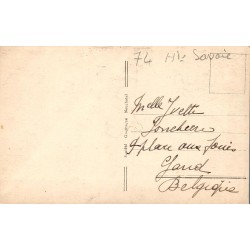 74 Hte Savoie
Melle Yvette
Joncheere
4 place aux foins
Gand
Belgique